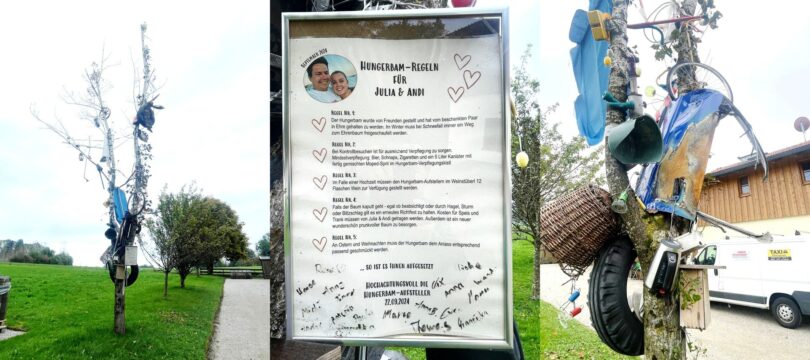 SEPTEMBER 2024
HUNGERBAM-REGELN
FÜR
JULIA & ANDI
REGEL NR. 1:
Der Hungerbam wurde von Freunden gestellt und hat vom beschenkten Paar
in Ehre gehalten zu werden. Im Winter muss bei Schneefall immer ein Weg
zum Ehrenbaum freigeschaufelt werden.
REGEL NR. 2:
Bei Kontrollbesuchen ist für ausreichend Verpflegung zu sorgen.
Mindestverpflegung: Bier, Schnaps, Zigaretten und ein 5 Liter Kanister mit
fertig gemischtem Moped-Sprit im Hungerbam-Verpflegungskastl
REGEL NR. 3:
Im Falle einer Hochzeit müssen den Hungerbam-Aufstellern im Weinstüberl 12
Flaschen Wein zur Verfügung gestellt werden.
REGEL NR. 4:
Falls der Baum kaputt geht - egal ob beabsichtigt oder durch Hagel, Sturm
oder Blitzschlag gilt es ein erneutes Richtfest zu halten. Kosten für Speis und
Trank müssen von Julia & Andi getragen werden. Außerdem ist ein neuer
wunderschön prunkvoller Baum zu besorgen.
REGEL NR. 5:
An Ostern und Weihnachten muss der Hungerbam dem Anlass entsprechend
passend geschmückt werden.
... SO IST ES IHNEN AUFGESETZT
HOCHACHTUNGSVOLL DIE
HUNGERBAM-AUFSTELLER
22.09.2024
Anna
Thomas
TAXI